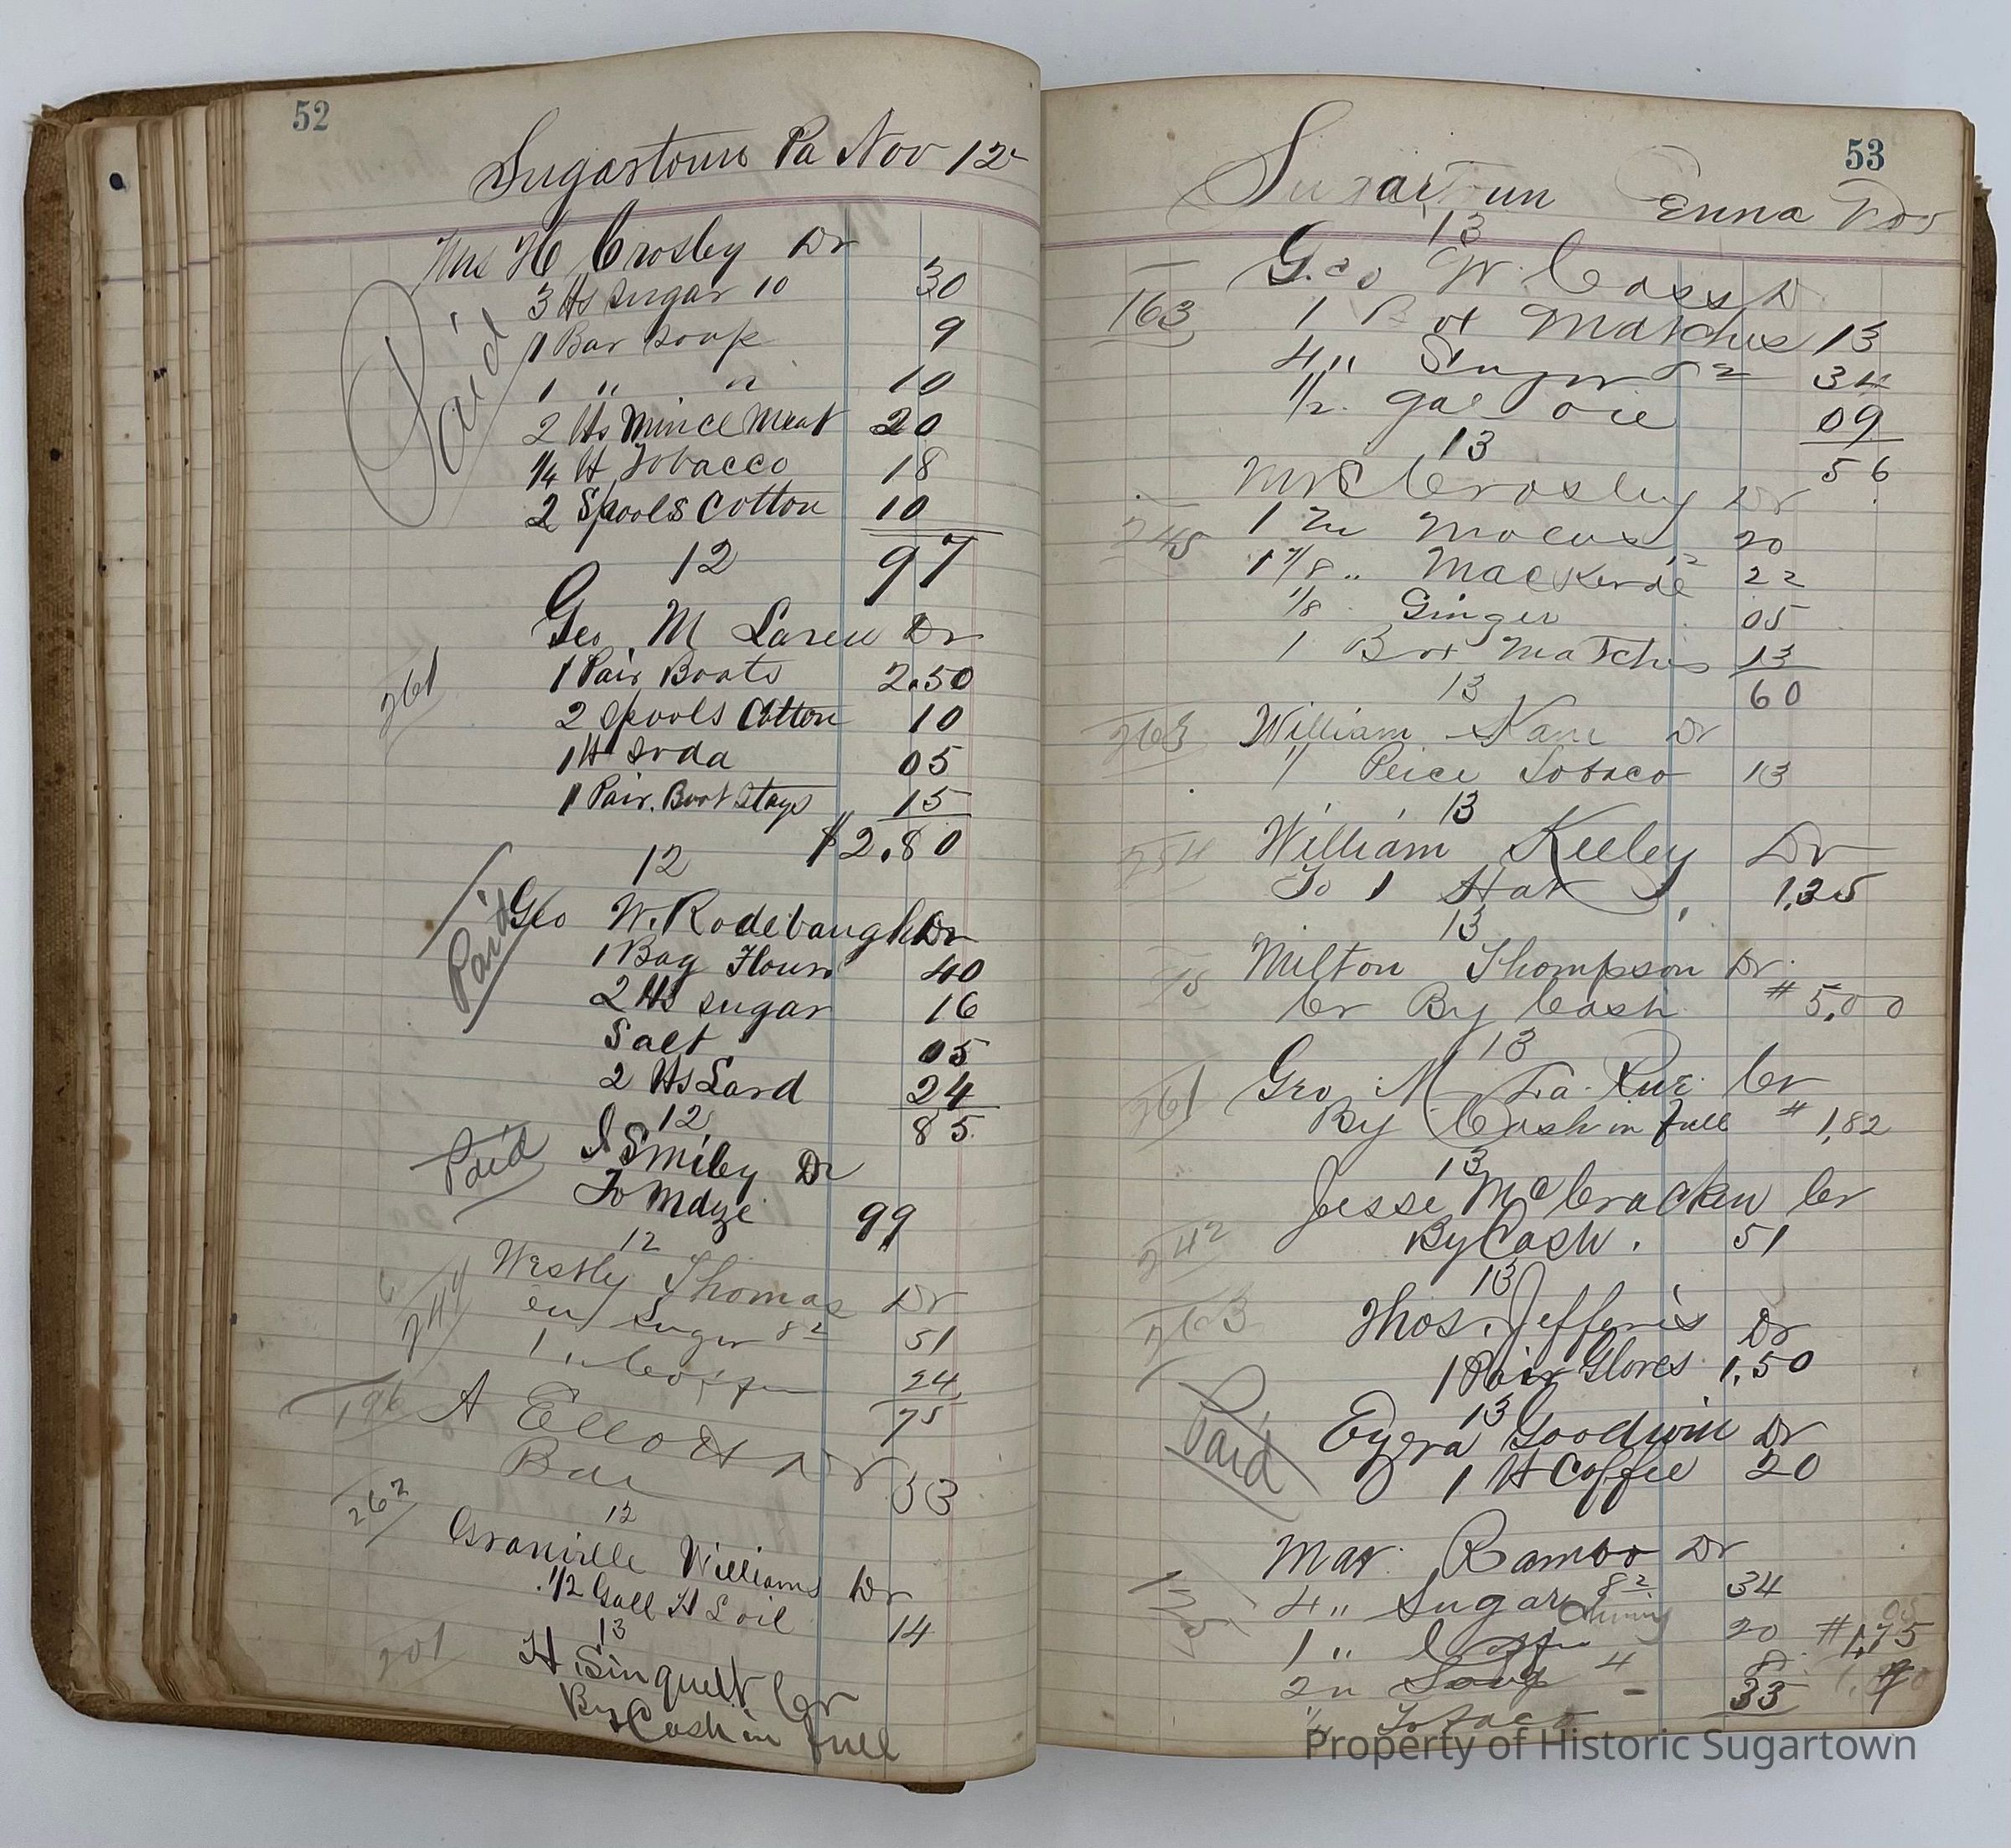 52
Sugartown Pa Nov 12
Mrs H Crosley Dr
3 lbs Sugar 10 30
1 Bar Soap 9
1 " " 10
2 lbs Mince Meat 20
1/4 lb Tobacco 18
2 Spools Cotton 10
97
12
Geo M Larew Dr
261
1 Pair Boots 2.50
2 Spools Cotton 10
1 lb Soda 05
1 Pair Boot Stays 15
$2.80
12
Paid
Geo W. Rodebaugh Dr
Paid
1 Bag Flour 40
2 lbs sugar 16
Salt 05
2 lbs Lard 24
85
12
Paid
I Smiley Dr
To Mdze 99
12
Westly Thomas Dr
244
Sugar 8 2 51
1 " Coffee 24
75
196 A Elliott Dr
Bal 33
262
12
Granville Williams Dr
1/2 Gall H L oil 14
13
201
H Sinquett Cr
By Cash in full
53
Sugartown
13
Geo W. Cass D
163 1 Box Matches 13
4 " Sugar 8 2 34
1/2 gal oil 09
56
13
Mrs Crosley Dr
245 20
1 7/8 " Mackerel 12 22
1/8 Ginger 05
1 Box Matches 13
60
13
263 William Kane Dr
1 Peice Tobaco 13
13
254 William Keeley Dr
To 1 Hat 1,25
13
Milton Thompson Dr
Cr By Cash # 5,00
13
261 Geo M La Rue Cr
By Cash in full # 1,82
13
Jesse McCracken Cr
242 By Cash. 51
13
263 Thos. Jefferis Dr
1 Pair Gloves 1,50
13
Paid
Ezra Goodwin Dr
1 lb Coffee 20
Mar. Rambo Dr
4 " Sugar 8 2 34
1 " Coffee 20 # 1,75
2 " Soap 4 8
Tobaco 33
Property of Historic Sugartown